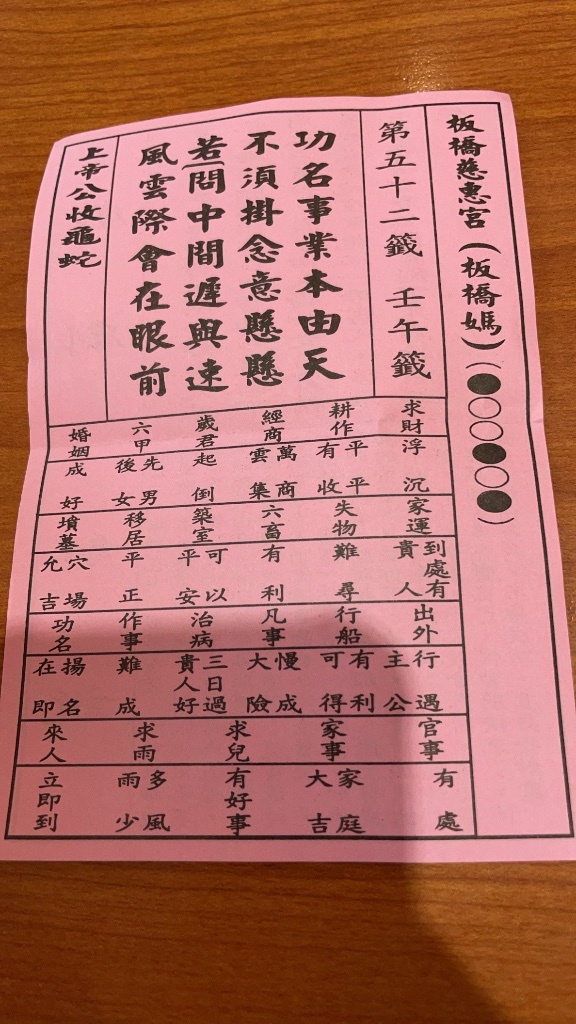 板橋慈惠宮（板橋媽）（●○○●○●）
第五十二籤 壬午籤
功名事業本由天
不須掛念意懸懸
若問中間遲與速
風雲際會在眼前
上帝公收龜蛇
求財 浮沉
耕作 平平有收
經商 萬商雲集
歲君 起倒
六甲 先男後女
婚姻 成好
家運 到處有貴人
失物 難尋
六畜 有利
築室 可以平安
移居 平正
墳墓 穴場允吉
出外 行遇主公
行船 有利可得
凡事 慢成大險
治病 三日過貴人好
作事 難成
功名 揚名在即
官事 有處
家事 家庭大吉
求兒 有好事
求雨 多風少雨
來人 立即到